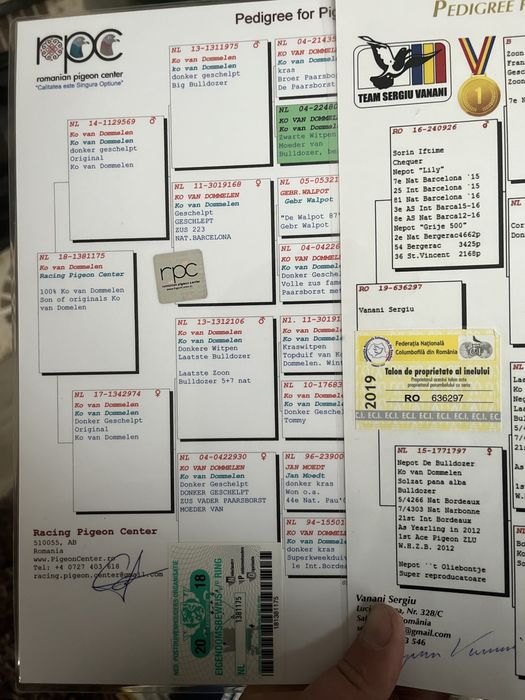 rpc
romanian pigeon center
"Calitatea este Singura Optiune"
Pedigree for Pig
NL 14-1129569 ♂
Ko van Dommelen
Ko van Dommelen
donker geschelpt
Original
Ko van Dommelen
NL 18-1381175
Ko van Dommelen
Racing Pigeon Center
100% Ko van Dommelen
Son of originals Ko
van Domelen
NL 17-1342974 ♀
Ko van Dommelen
Ko van Dommelen
Donker Geschelpt
Original
Ko van Dommelen
NL 13-1311975 ♂
Ko van Dommelen
ko van Dommelen
donker geschelpt
Big Bulldozer
NL 11-3019168 ♀
Ko van Dommelen
Ko van Dommelen
Geschelpt
GESCHLEPT
ZUS 223
NAT.BARCELONA
rpc
romanian pigeon center
NL 13-1312106 ♂
Ko van Dommelen
Ko van Dommelen
Donkere Witpen
Laatste Bulldozer
Laatste Zoon
Bulldozer 5+7 nat
NL 04-0422930 ♀
KO VAN DOMMELEN
KO VAN DOMMELEN
Donker Geschelpt
DONKER GESCHELPT
ZUS VADER PAARSBORST
MOEDER VAN
NL 04-21435
KO VAN DOMMEL
KO VAN DOMMEL
kras
Broer Paarsbo
De Paarsborst
NL 04-22480
KO VAN DOMMEL
KO VAN DOMMEL
Zwarte Witpen
Moeder van
Bulldozer, be
NL 05-05321
GEBR.WALPOT
Gebr Walpot
"De Walpot 87"
Gebr Walpot
NL 04-04226
KO VAN DOMMEL
KO VAN DOMMEL
Donker Gesche
Volle zus fam
Paarsborst
Nl. 11-30191
Ko van Dommel
Ko van Dommel
Kraswitpen
Topduif van K
Dommelen. Win
NL 10-17683
Ko van Dommel
Ko van Dommel
Donker Gesche
Tommy
NL 96-23900
JAN MOEDT
JAN MOEDT
donker kras
Won o.a.
44e Nat. Pau'
NL 94-15501
KO VAN DOMMEL
KO VAN DOMMEL
donker kras
Superkweekdui
1e Int.Bordea
Racing Pigeon Center
510055, AB
Romania
www.PigeonCenter.ro
Tel: +4 0727 403 618
racing.pigeon.center@gmail.com
NCP. POSTDUIVENHOUDERS ORGANISATIE
20 18
EIGENDOMSBEWIJS RING
NL 1381175
181381175
PEDIGREE F
TEAM SERGIU VANANI
1
RO 16-240926 ♂
Sorin Iftime
Chequer
Nepot "Lily"
7e Nat Barcelona '15
25 Int Barcelona '15
81 Nat Barcelona '16
3e AS Int Barcal5-16
8e AS Nat Barca12-16
Nepot "Grije 500"
2e Nat Bergerac4662p
54 Bergerac 3425p
36 St.Vincent 2168p
RO 19-636297
Vanani Sergiu
2019
Federaţia Naţională
Columbofilă din România
Talon de proprietate al inelului
Proprietarul acestui talon este
proprietarul porumbelului cu seria
RO 636297
F.C.I. F.C.I. F.C.I. F.C.I. F.C.I. F.C.I. F.C.I.
NL 15-1771797 ♀
Nepot De Bulldozer
KO VAN DOMMELEN
Solzat pana alba
Bulldozer
5/4266 Nat Bordeaux
7/4303 Nat Narbonne
21st Int Bordeaux
As Yearling in 2012
1st Ace Pigeon ZLU
W.H.Z.B. 2012
Nepot ''t Oliebontje
Super reproducatoare
Vanani Sergiu
Nr. 328/C
România
@gmail.com
3 546